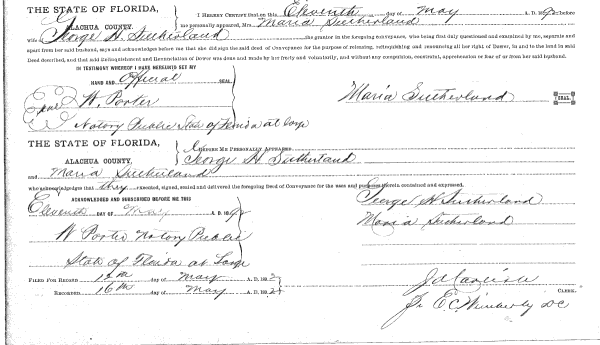 THE STATE OF FLORIDA,
ALACHUA COUNTY.
I HEREBY CERTIFY that on this Eleventh day of May A. D. 1892 before
me personally appeared, Mrs. Maria Sutherland
wife of George H. Sutherland the grantor in the foregoing conveyance, who being first duly questioned and examined by me, separate and
apart from her said husband, says and acknowledges before me that she did sign the said deed of Conveyance for the purpose of releasing, relinquishing and renouncing all her right of Dower, in and to the land in said
Deed described, and that said Relinquishment and Renunciation of Dower was done and made by her freely and voluntarily, and without any compulsion, constraint, apprehension or fear of or from her said husband.
IN TESTIMONY WHEREOF I HAVE HEREUNTO SET MY
HAND AND Official
Seal
W. Porter
Notary Public State of Florida at large
Maria Sutherland SEAL.
THE STATE OF FLORIDA,
ALACHUA COUNTY.
BEFORE ME PERSONALLY APPEARED
George H. Sutherland
and Maria Sutherland
who acknowledges that they executed, signed, sealed and delivered the foregoing deed of Conveyance for the uses and purposes therein contained and expressed.
ACKNOWLEDGED AND SUBSCRIBED BEFORE ME THIS
Eleventh DAY OF May A. D. 1892
George H Sutherland
Maria Sutherland
W Porter Notary Public
State of Florida at Large
FILED FOR RECORD day of May A. D. 1892
RECORDED 16th day of May A. D. 1892
CLERK.
E. C. Wimberly DC